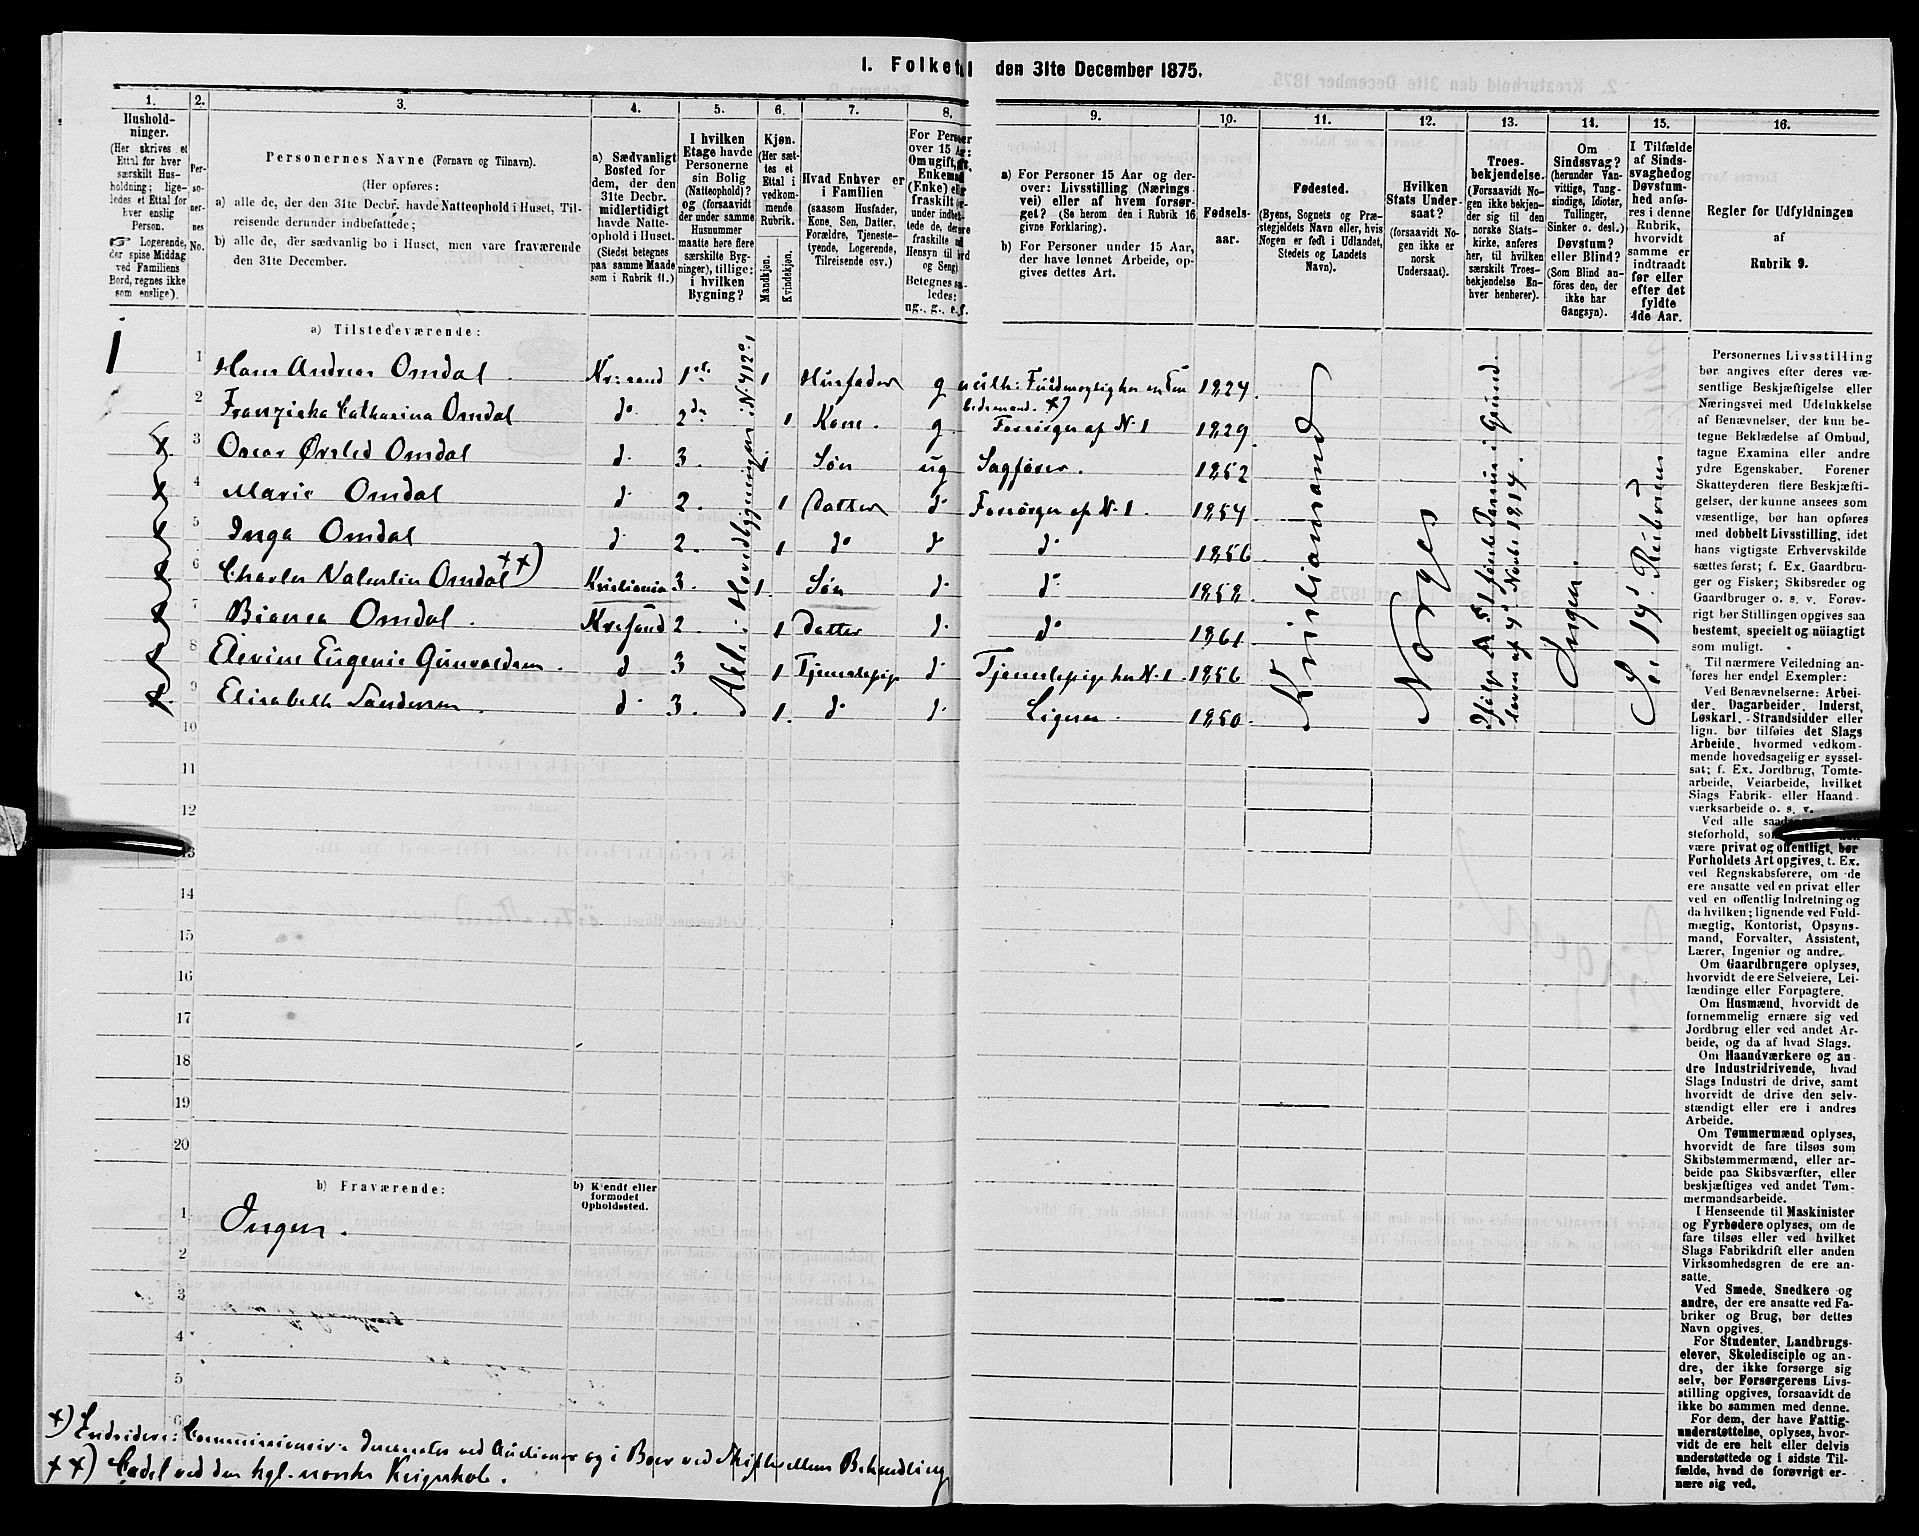 1. Folketal den 31te December 1875.
1. 2. 3. 4. 5. 6. 7. 8. 9. 10. 11. 12. 13. 14. 15. 16.
Hushold-
ninger.
(Her skrives et
Ettal for hver
særskilt Hus-
holdning; lige-
ledes et Ettal for
hver enslig
Person.
☞ Logerende,
der spise Middag
ved Familiens
Bord, regnes ikke
som enslige).
Per-
so-
ner-
nes
No.
Personernes Navne (Fornavn og Tilnavn).
(Her opføres:
a) alle de, der den 31te Decbr. havde Natteophold i Huset, Til-
reisende derunder indbefattede;
b) alle de, der sædvanlig bo i Huset, men vare fraværende
den 31te December.
a) Sædvanligt
Bosted for
dem, der den
31te Decbr.
midlertidigt
havde Natte-
ophold i Huset.
(Stedet betegnes
paa samme Maade
som i Rubrik 11.)
I hvilken
Etage havde
Personerne
sin Bolig
(Natteophold)?
og (forsaavidt
der under samme
Husnummer
maatte høre flere
særskilte Byg-
ninger), tillige:
i hvilken
Bygning?
Kjøn.
(Her sæt-
tes et
Ettal i
vedkom-
mende
Rubrik.
Mandkjøn.
Kvindekjøn.
Hvad Enhver er
i Familien
(saasom Husfader,
Kone, Søn, Datter,
Forældre, Tjeneste-
tyende, Logerende,
Tilreisende osv.)
For Personer
over 15 Aar:
Om ugift, gift,
Enkemand
(Enke) eller
fraskilt
a) For Personer 15 Aar og der-
over: Livsstilling (Nærings-
vei) eller af hvem forsør-
get? (Se herom den i Rubrik 16
givne Forklaring).
b) For Personer under 15 Aar,
der have lønnet Arbeide, op-
gives dettes Art.
Fødsels-
aar.
Fødested.
(Byens, Sognets og Præ-
stegjeldets Navn eller, hvis
Nogen er født i Udlandet,
Stedets og Landets
Navn).
Hvilken
Stats Under-
saat?
(forsaavidt No-
gen ikke er
norsk
Undersaat).
Troes-
bekjendelse.
(Forsaavidt No-
gen ikke bekjen-
der sig til den
norske Stats-
kirke, anføres
her, til hvilken
særskilt Troes-
bekjendelse En-
hver henhører).
Om
Sindssvag?
(herunder Van-
vittige, Tung-
sindige, Idioter,
Tullinger,
Sinker o. desl.)
Døvstum?
eller Blind?
(Som Blind an-
føres den, der
ikke har
Gangsyn).
I Tilfælde
af Sinds-
svaghed og
Døvstum-
hed anfø-
res i denne
Rubrik,
hvorvidt
samme er
indtraadt
før eller
efter det
fyldte
4de Aar.
Regler for Udfyldningen
af
Rubrik 9.
a) Tilstedeværende:
1
1 Hans Andreas Omdal Kr:sand 1ste 1 Husfader g 1824
2 Franziska Catharina Omdal do 2den 1 Kone. g. Forsørges af N.1 1829
3 Oscar Ørsted Omdal d. 3. 1 Søn ug Sagfører. 1852
4 Marie Omdal d. 2. 1 Datter d. Forsørges af N.1. 1854
5 Inga Omdal d. 2. 1 do d do 1856
6 Charles Valentin Omdal ××) Kristiania 3. 1 Søn d. do 1858
7 Bianca Omdal. Krsand 2. 1 Datter d. do 1861
8 Elevine Eugenie Gunvaldsen. d 3 1 Tjenestepige d Tjenestepige hos N.1. 1856
9 Elisabeth Sandersen. d. 3. 1. do d. Ligesaa. 1850.
Alle i Hovedbygningen i N. 412
Kristiansand
Norges
Ingen.
10
11
12
13
14
15
16
17
18
19
20
b) Fraværende:
b) Kjendt eller
formodet
Opholdssted.
1 Ingen.
2
3
4
5
6
××) Cadet ved den kgl. norske Krigsskole.
Personernes Livsstilling
bør angives efter deres væ-
sentlige Beskjæftigelse eller
Næringsvei med Udelukkelse
af Benævnelser, der kun be-
tegne Beklædelse af Ombud,
tagne Examina eller andre
ydre Egenskaber. Forener
Skatteyderen flere Beskjæfti-
gelser, der kunne ansees som
væsentlige, bør han opføres
med dobbelt Livsstilling, idet
hans vigtigste Erhvervskilde
sættes først; f. Ex. Gaardbru-
ger og Fisker; Skibsreder og
Gaardbruger o. s. v. Forøv-
rigt bør Stillingen opgives saa
bestemt, specielt og nöiagtigt
som muligt.
Til nærmere Veiledning an-
føres her endel Exempler:
Ved Benævnelserne: Arbei-
der, Dagarbeider, Inderst,
Løskarl, Strandsidder eller
lign. bør tilføies det Slags
Arbeide, hvormed vedkom-
mende hovedsagelig er syssel-
sat; f. Ex. Jordbrug, Tomte-
arbeide, Veiarbeide, hvilket
Slags Fabrik- eller Haand-
værksarbeide o. s. v.
Ved alle
være privat og offentligt, bør
Forholdets Art opgives, f. Ex.
ved Regnskabsførere, om de
ere ansatte ved en privat eller
ved en offentlig Indretning og
da hvilken; lignende ved Fuld-
mægtig, Kontorist, Opsyns-
mand, Forvalter, Assistent,
Lærer, Ingeniør og andre.
Om Gaardbrugere oplyses,
hvorvidt de ere Selveiere, Lei-
lændinge eller Forpagtere.
Om Husmænd, hvorvidt de
fornemmelig ernære sig ved
Jordbrug eller ved andet Ar-
beide, og da af hvad Slags.
Om Haandværkere og an-
dre Industridrivende, hvad
Slags Industri de drive, samt
hvorvidt de drive den selv-
stændigt eller ere i andres
Arbeide.
Om Tømmermænd oplyses,
hvorvidt de fare tilsøs som
Skibstømmermænd, eller ar-
beide paa Skibsværfter, eller
beskjæftiges ved andet Tøm-
mermandsarbeide.
I Henseende til Maskinister
og Fyrbødere oplyses, om de
fare tilsøs eller ved hvilket
Slags Fabrikdrift eller anden
Virksomhedsgren de ere an-
satte.
Ved Smede, Snedkere og
andre, der ere ansatte ved Fa-
briker og Brug, bør dettes
Navn opgives.
For Studenter, Landbrugs-
elever, Skoledisciple og an-
dre, der ikke forsørge sig
selv, bør Forsørgerens Livs-
stilling opgives, forsaavidt de
ikke bo sammen med denne.
For dem, der have Fattig-
understøttelse, oplyses, hvor-
vidt de ere helt eller delvis
understøttede og i sidste Til-
fælde, hvad de forøvrigt er-
nære sig ved.